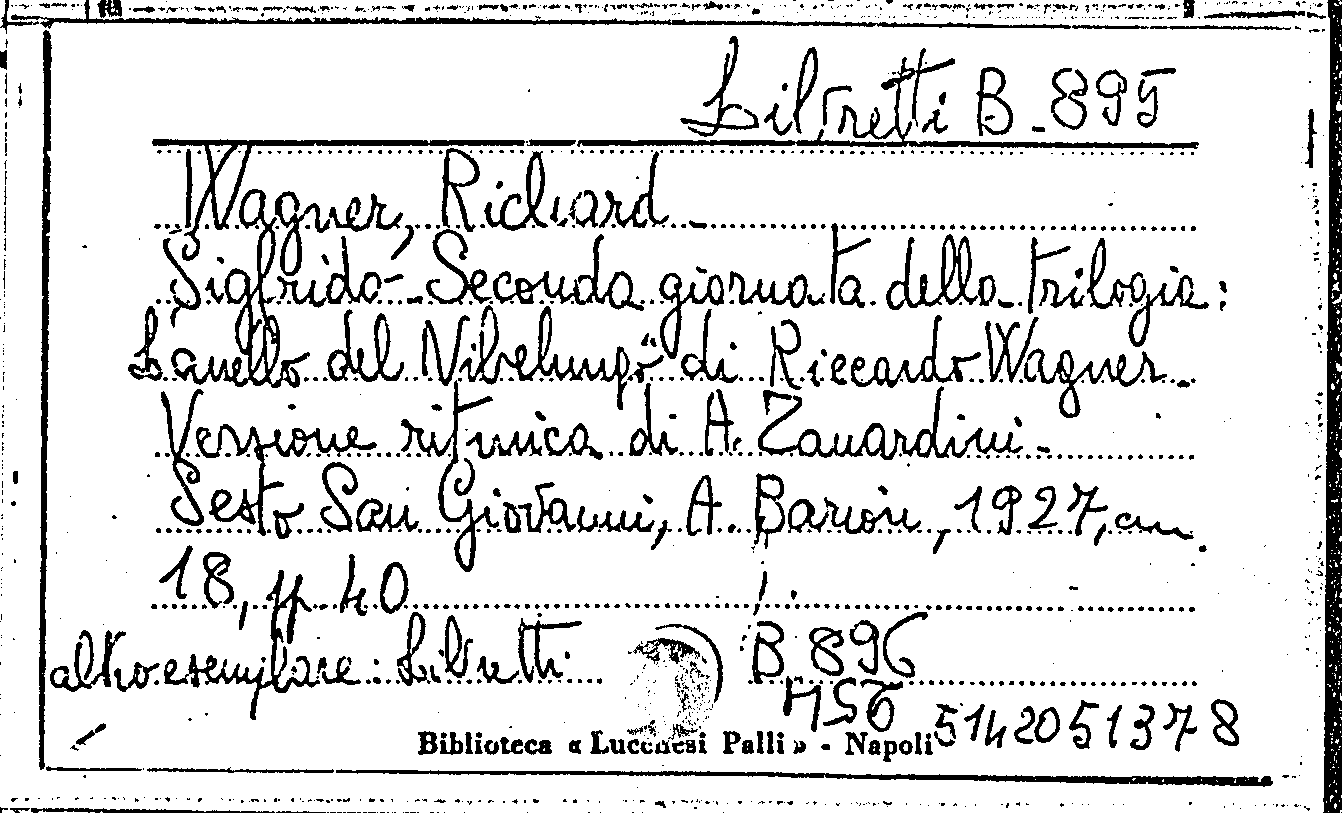 Libretti B-895
Wagner, Richard -
Sigfrido - Seconda giornata della trilogia:
L'anello del Nibelungo" di Riccardo Wagner -
Versione ritmica di A. Zanardini -
Sesto San Giovanni, A. Barion, 1927, cm.
18, pp. 40
altro esemplare: Libretti B 896
Biblioteca « Lucchesi Palli » - Napoli 5142051378